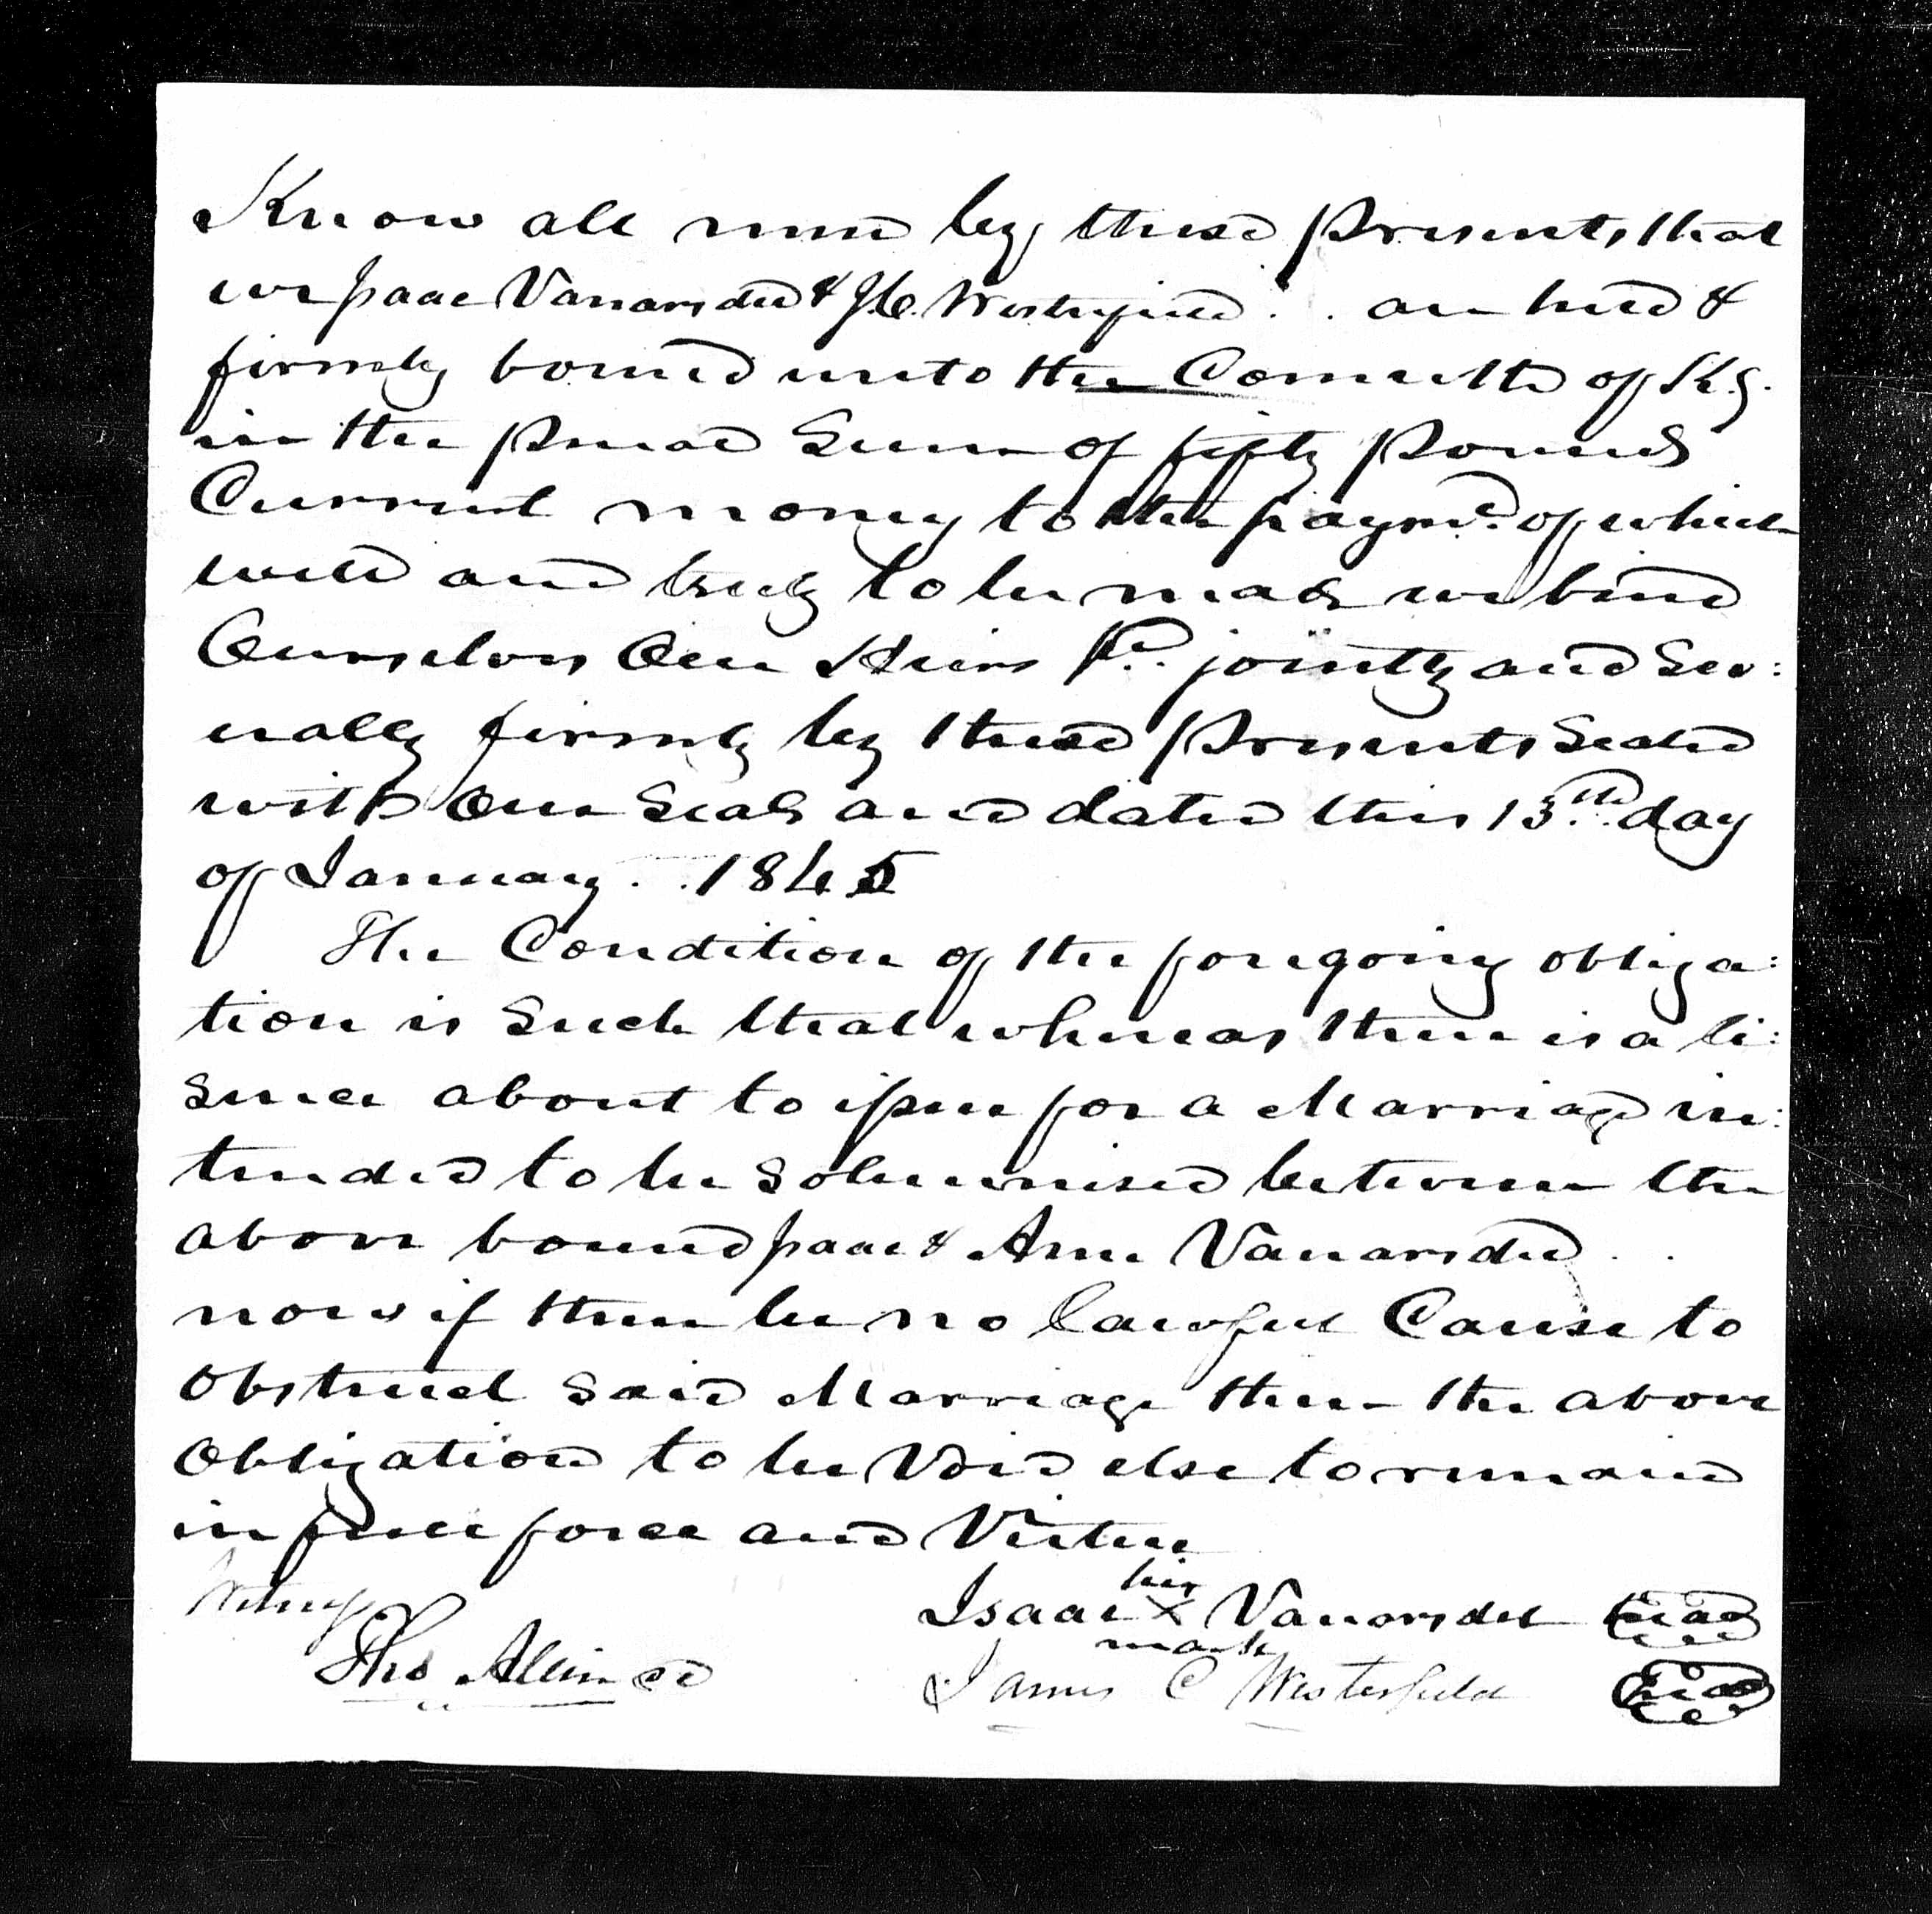 Know all men by these presents that
we Isaac Vanarsdell & J.C. Westerfield . . are held &
firmly bound unto the Comwlth of Ky.
in the penal Sum of fifty pounds
Current money to the paymt. of which
well and truly to be made we bind
Ourselves Our Heirs &c. jointly and Sev:
erally firmly by these presents Sealed
with Our Seals and dated this 13th. day
of January . . 1845
The Condition of the foregoing obliga:
tion is Such that whereas there is a li:
sence about to issue for a Marriage in:
tended to be Solemnised between the
above bound Isaac & Ann Vanarsdell . .
now if there be no lawful Cause to
Obstruct Said Marriage then the above
Obligation to be Void else to remain
in full force and Virtue
Witness
his
Isaac X Vanarsdell Seal
mark
Tho Allin CC
James C Westerfield Seal